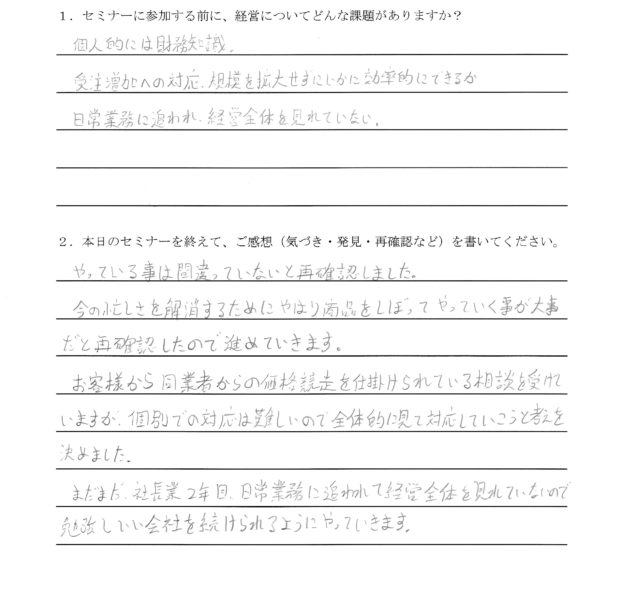 1．セミナーに参加する前に、経営についてどんな課題がありますか？
個人的には財務知識。
受注増加への対応、規模を拡大せずにいかに効率的にできるか
日常業務に追われ、経営全体を見れていない。
2．本日のセミナーを終えて、ご感想（気づき・発見・再確認など）を書いてください。
やっている事は間違っていないと再確認しました。
今の忙しさを解消するためにやはり商品をしぼってやっていく事が大事
だと再確認したので進めていきます。
お客様から同業者からの価格競走を仕掛けられている相談を受けて
いますが、個別での対応は難しいので全体的に見て対応していこうと考えを
決めました。
まだまだ、社長業2年目、日常業務に追われて経営全体を見れていないので
勉強しいい会社を続けられるようにやっていきます。